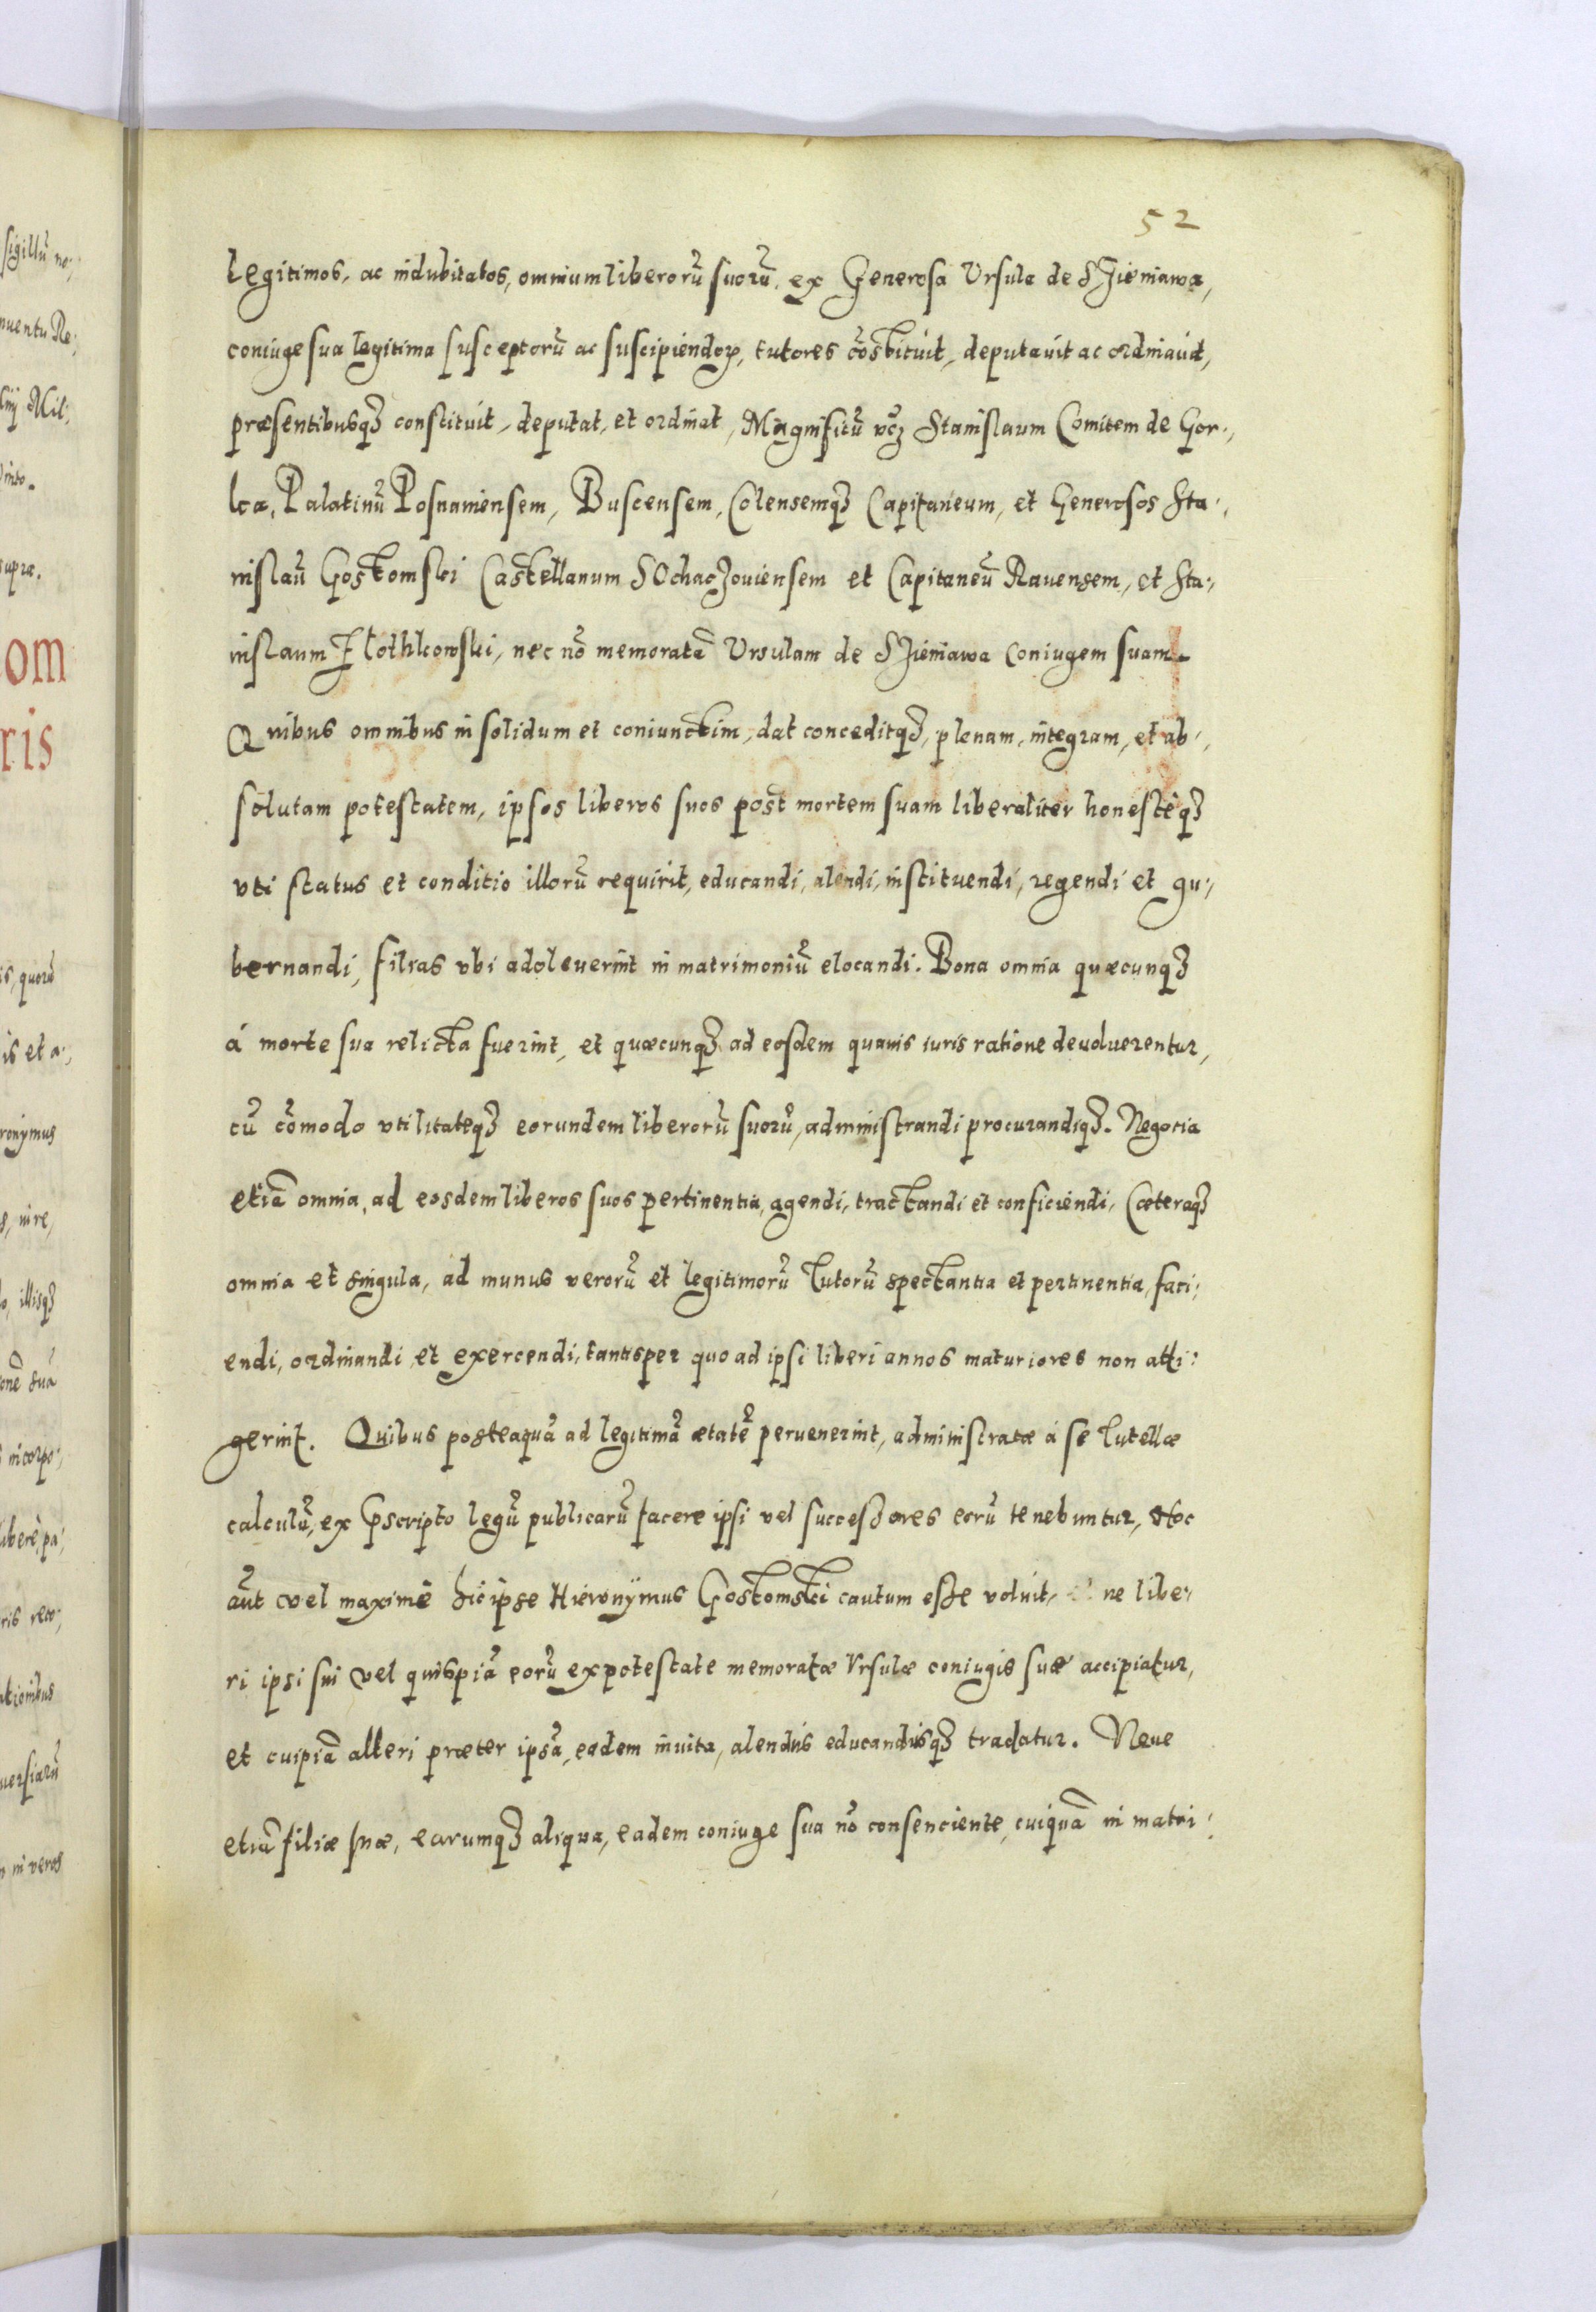 52
legitimos, ac indubitatos, omnium liberorũ suorũ, ex Generosa Vrsula de SJieniawa,
coniuge sua legitima susceptorũ ac suscipiendoꝝ, tutores cõstituit, deputauit ac ordinauit,
præsentibusqꝫ constituit, deputat, et ordinat, Magnificũ vcꝫ Stanislaum Comitem de Gor-,
ka, Palatinũ Posnaniensem, Buscensem, Colensemqꝫ Capitaneum, et Generosos Sta-,
nislaũ Gostomski Castellanum SOchaczouiensem et Capitaneũ Rauensem, et Sta-,
nislaum Kothkowski, nec nõ memoratã Vrsulam de SJieniawa Coniugem suam.
Quibus omnibus in solidum et coniunctim, dat conceditqꝫ, plenam, integram, et ab-,
solutam potestatem, ipsos liberos suos post mortem suam liberaliter honestèqꝫ
vti status et conditio illorũ requirit, educandi, alendi, instituendi, regendi et gu-,
bernandi, filias vbi adoleuerint in matrimoniũ elocandi. Bona omnia quæcunqꝫ
á morte sua relicta fuerint, et quæcunqꝫ ad eosdem quauis iuris ratione deuoluerentur,
cũ cõmodo vtilitateqꝫ eorundem liberorũ suorũ, administrandi procurandiqꝫ. Negotia
etiã omnia, ad eosdem liberos suos pertinentia, agendi, tractandi et conficiendi, Cæteraqꝫ
omnia et singula, ad munus verorũ et legitimorũ Tutorũ spectantia et pertinentia, faci-,
endi, ordinandi et exercendi, tantisper quo ad ipsi liberi annos maturiores non atti-
gerint. Quibus posteaquã ad legitimã ætatẽ peruenerint, administratæ á se Tutellæ
calculũ, ex pscripto legũ publicarũ facere ipsi vel successores eorũ tenebuntur, Hoc
aũt vel maximè hic ipse Hieronÿmus Gostomski cautum esse voluit, ne libe-
ri ipsi sui vel quispiã eorũ ex potestate memoratæ Vrsulæ coniugis suæ accipiatur,
et cuipiã alteri præter ipsã, eadem inuita, alendus educandusqꝫ tradatur. Neue
etiã filiæ suæ, earumqꝫ aliqua, eadem coniuge sua nõ consenciente, cuiquã in matri-